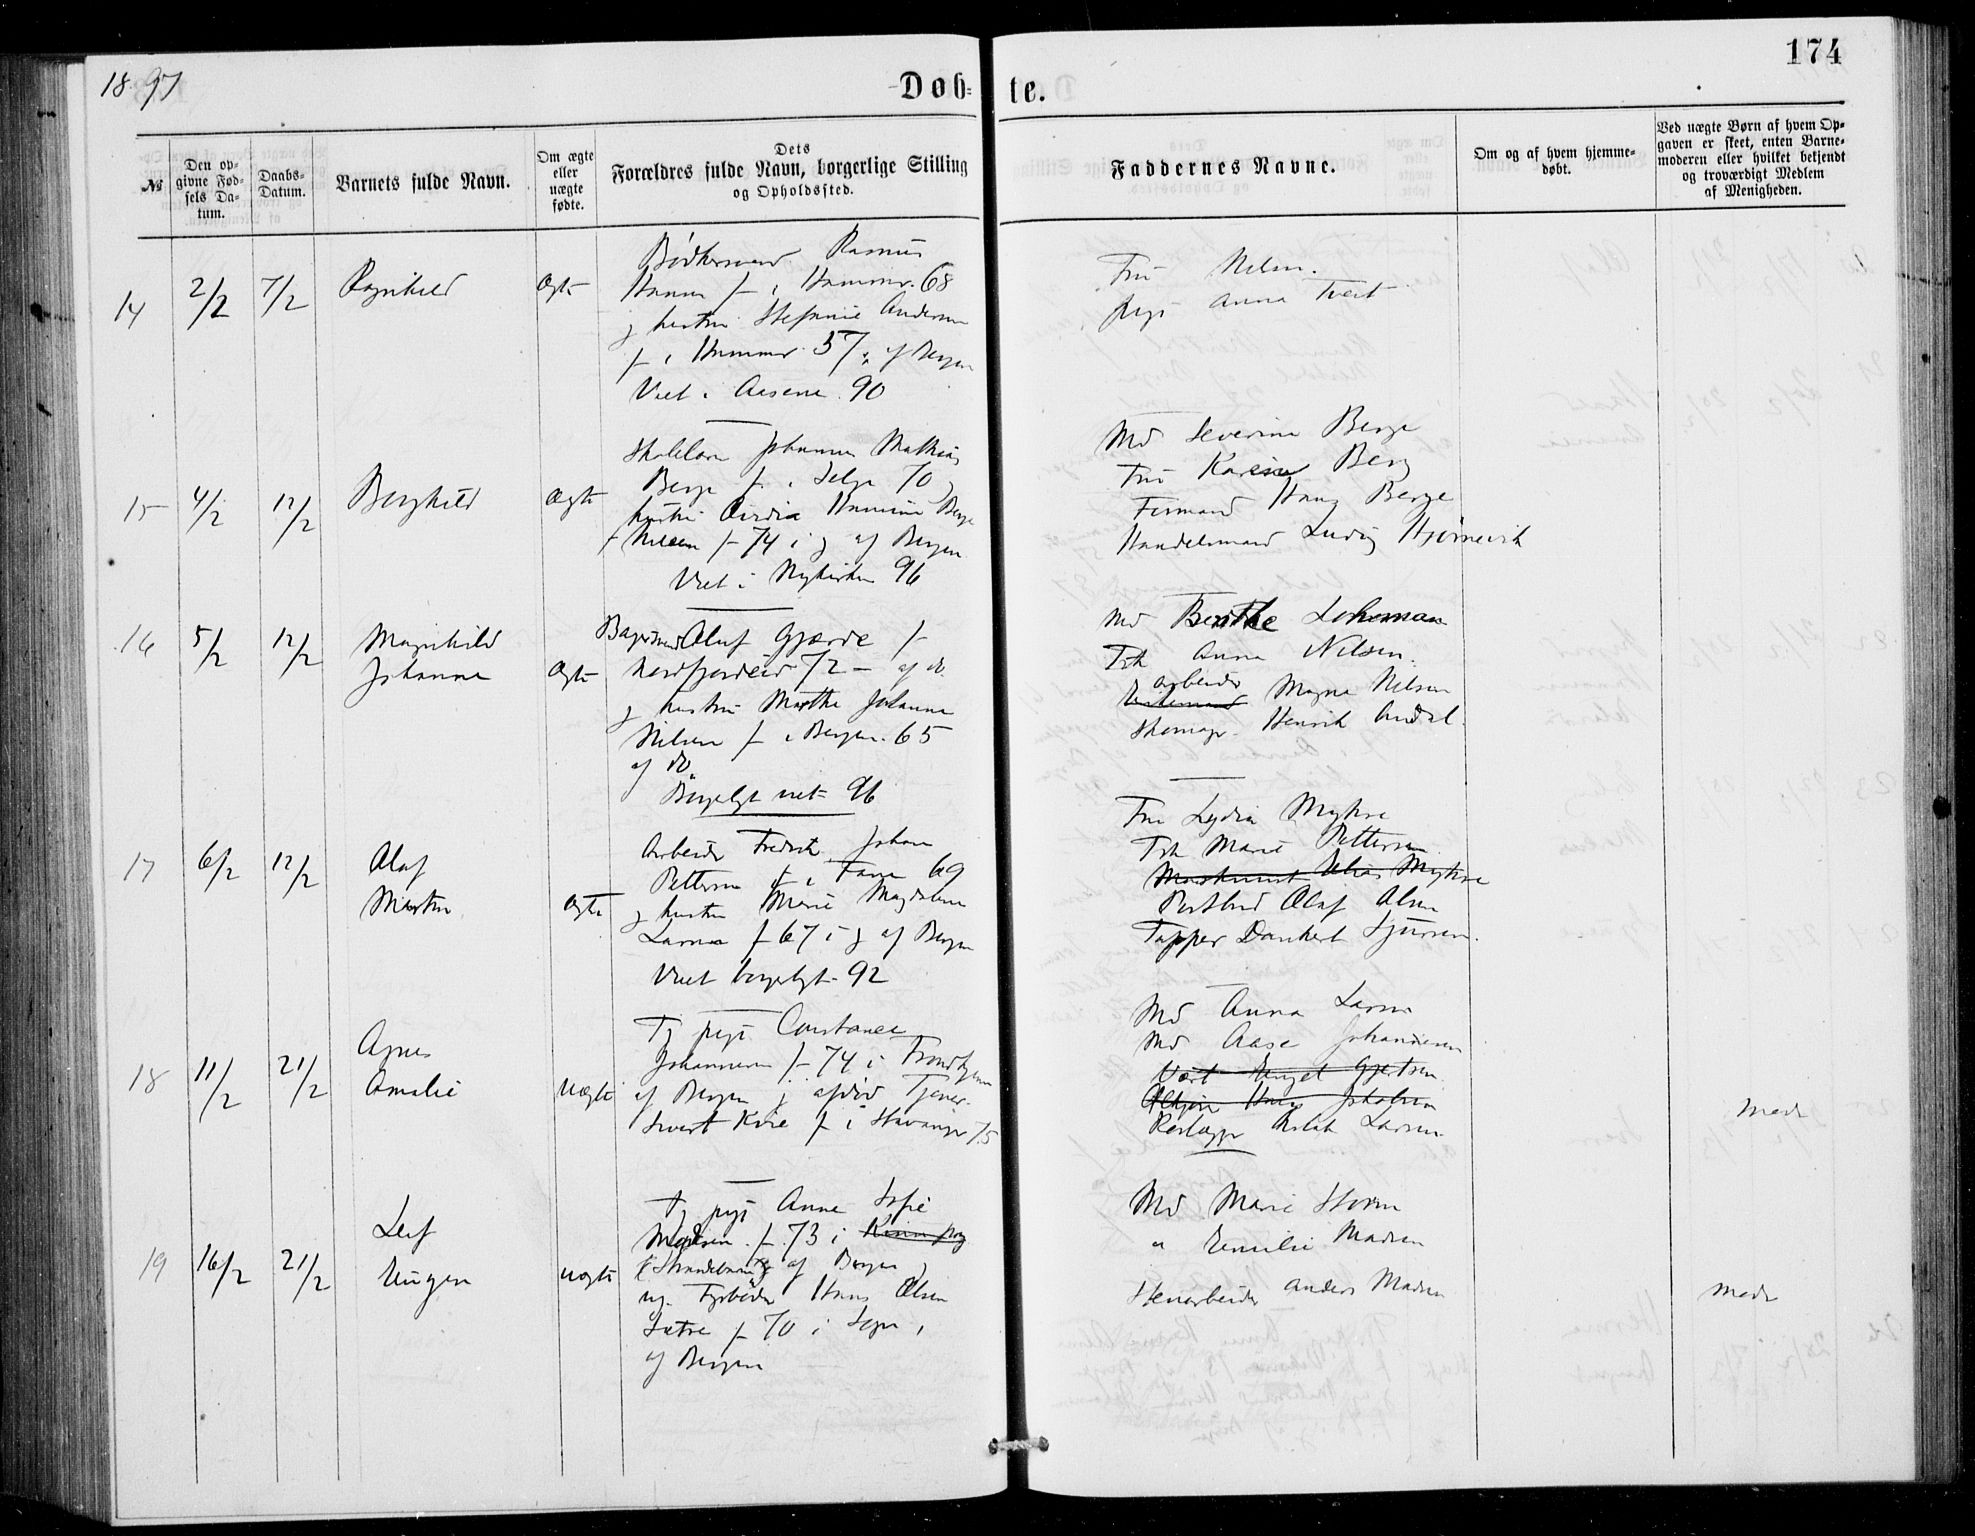 1897
Døb-
te.
174
№
Den op-
givne Fød-
sels Da-
tum.
Daabs-
Datum.
Barnets fulde Navn.
Om ægte
eller
uægte
fødte.
Dets
Forældres fulde Navn, borgerlige Stilling
og Opholdssted.
Faddernes Navne.
Om og af hvem hjemme-
døbt.
Ved uægte Børn af hvem Op-
gaven er skeet, enten Barne-
moderen eller hvilket bekjendt
og troværdigt Medlem
af Menigheden.
14
2/2
7/2
Ragnhild
Ægte
Bødkersvend Rasmus
f i Hammer 68
og hustru Stefanie Andersen
f i Hammer 57 af Bergen
Viet i 90
Fru Nilsen.
Pige Anna Tveit
15
4/2
12/2
Borghild
Ægte
Skolelærer Johannes Mathias
Berge f. i Selje 70 og
hustru Berge
f Nilsen f 74 i og af Bergen
Viet i Nykirken 96
Md Severine Berge
Fru Karen Berg
Formand Hans Berge
Handelsmand Ludvig Hjørnevik
16
5/2
12/2
Magnhild
Johanne
Ægte
Bagersvend Oluf Gjærde f
Nordfjordeid 72 – af do.
og hustru Marthe Johanne
Nilsen f i Bergen. 65
af do
Borgerligt viet 96
Md Berthe Lohsman
Frk Anna Nilsen.
arbeider Magne Nilsen
Skomager Henrik
17
6/2
12/2
Olaf
Martin
Ægte
Arbeider Fredrik Johan
Pettersen f i Fane 69
og hustru Marie Magdalene
Larsen f 67 i og af Bergen
Viet borgerligt 92
Fru Lydia Myhre
Frk Marie Pettersen
Maskinist Elias Myhre
Postbud Olaf Olsen
Tapper Dankert Sjursen.
18
11/2
21/2
Agnes
Amalie
Uægte
Tj pige Constance
Johannesen f 74 i Trondhjem
af Bergen og afdød Tjener
Sivert f i Stavanger 75
Md Anna Larsen
Md Aase Johannesen
Vært Gjertsen.
Hans Jakobsen
Larsen
Mode
19
16/2
21/2
Leif
Uægte
Tj pige Anne Sofie
Madsen f. 73 i Kinn
af Bergen og
ug. Fyrbøder Hans Olsen
Sætre f 70 i Sogn,
af Bergen
Md Marie Storm
" Emilie Madsen
Stenarbeider Anders Madsen
Mode